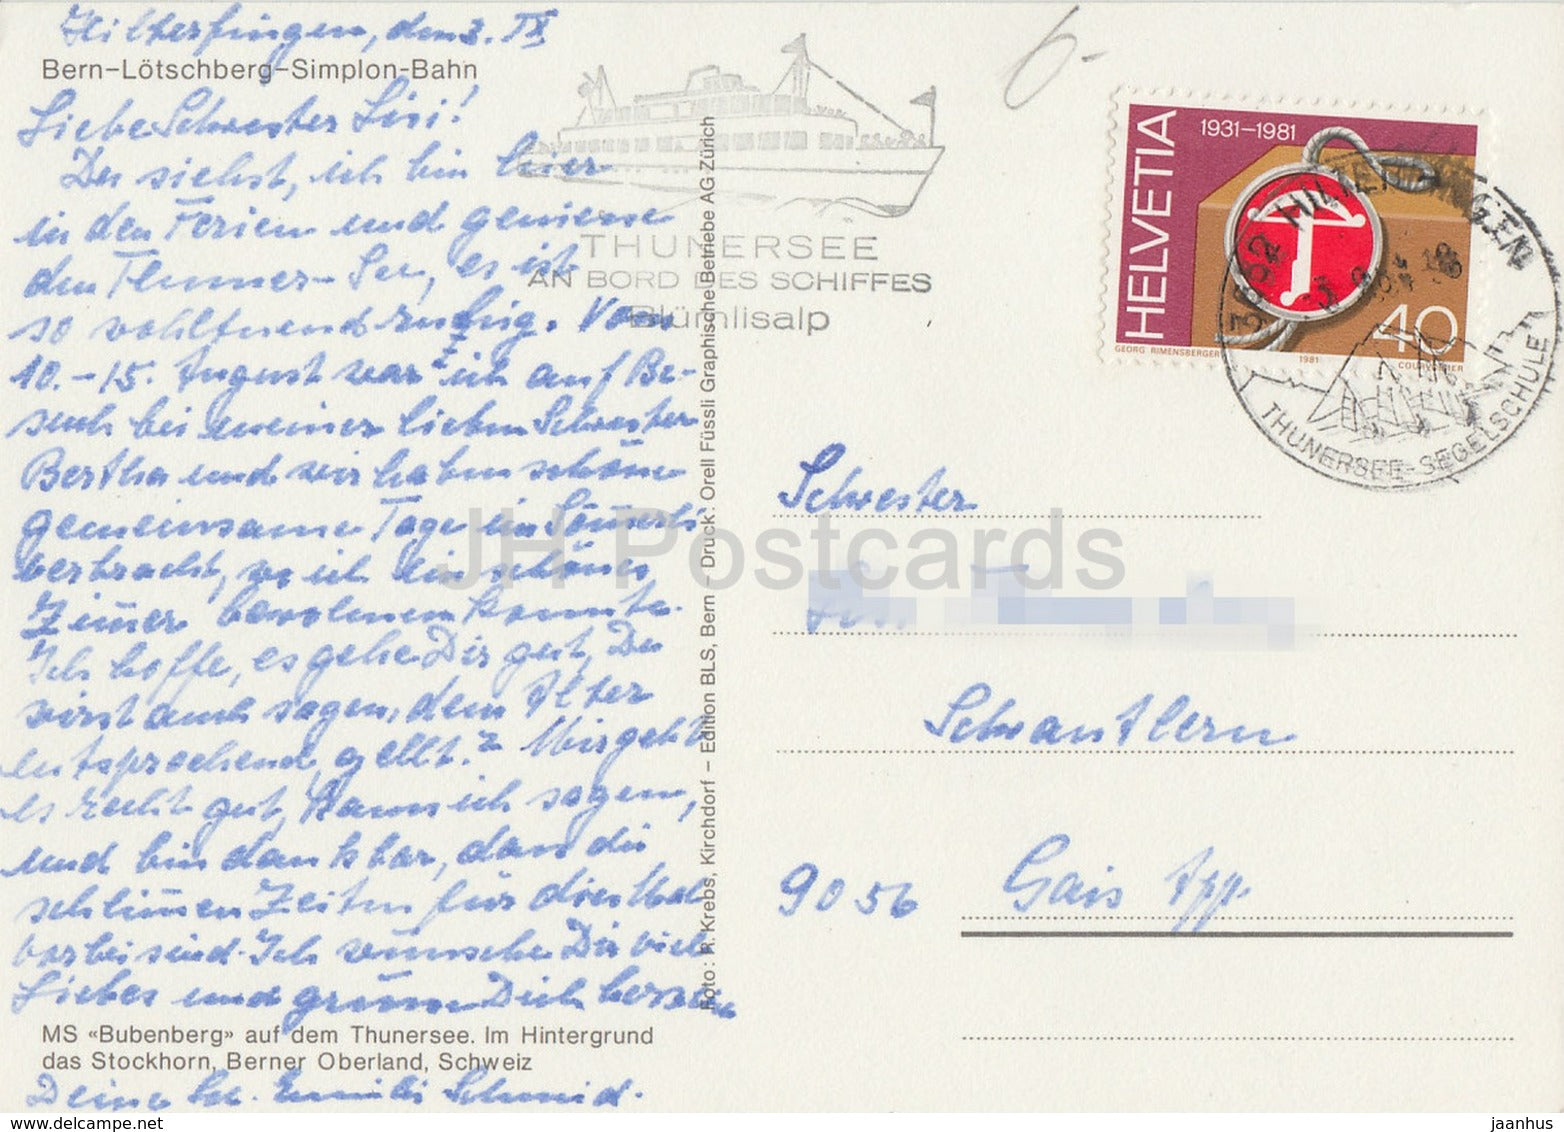 Hilterfingen, den 3. IX
Bern–Lötschberg–Simplon-Bahn
Liebe Schwester Lisi!
Du siehst, ich bin hier
in den Ferien und geniesse
den Thuner-See, es ist
so wohltuend ruhig. Vom
10.-15. August war ich auf Be-
such bei meiner lieben Schwester
Bertha und wir haben schöne
gemeinsame Tage im
verbracht, wo ich ein schönes
Zimer bewohnen konnte.
Ich hoffe, es gehe Dir gut, Du
wirst auch sagen, dem Alter
entsprechend, gellt? Mir geht
es recht gut, kann ich sagen,
und bin dankbar, dass die
schlimen Zeiten für dies Mal
vorbei sind. Ich wünsche Dir viel
Liebes und grüsse Dich herzlich
MS «Bubenberg» auf dem Thunersee. Im Hintergrund
das Stockhorn, Berner Oberland, Schweiz
Deine Sr. Emilie Schmid.
Foto: R. Krebs, Kirchdorf – Edition BLS, Bern – Druck: Orell Füssli Graphische Betriebe AG Zürich
THUNERSEE
AN BORD DES SCHIFFES
Blümlisalp
6.-
1931–1981
HELVETIA
40
GEORG RIMENSBERGER
1981
COURVOISIER
3652 HILTERFINGEN
THUNERSEE-SEGELSCHULE
Schwester
Schwantlern
9056 Gais App.
JH Postcards
www.delcampe.net
jaanhus